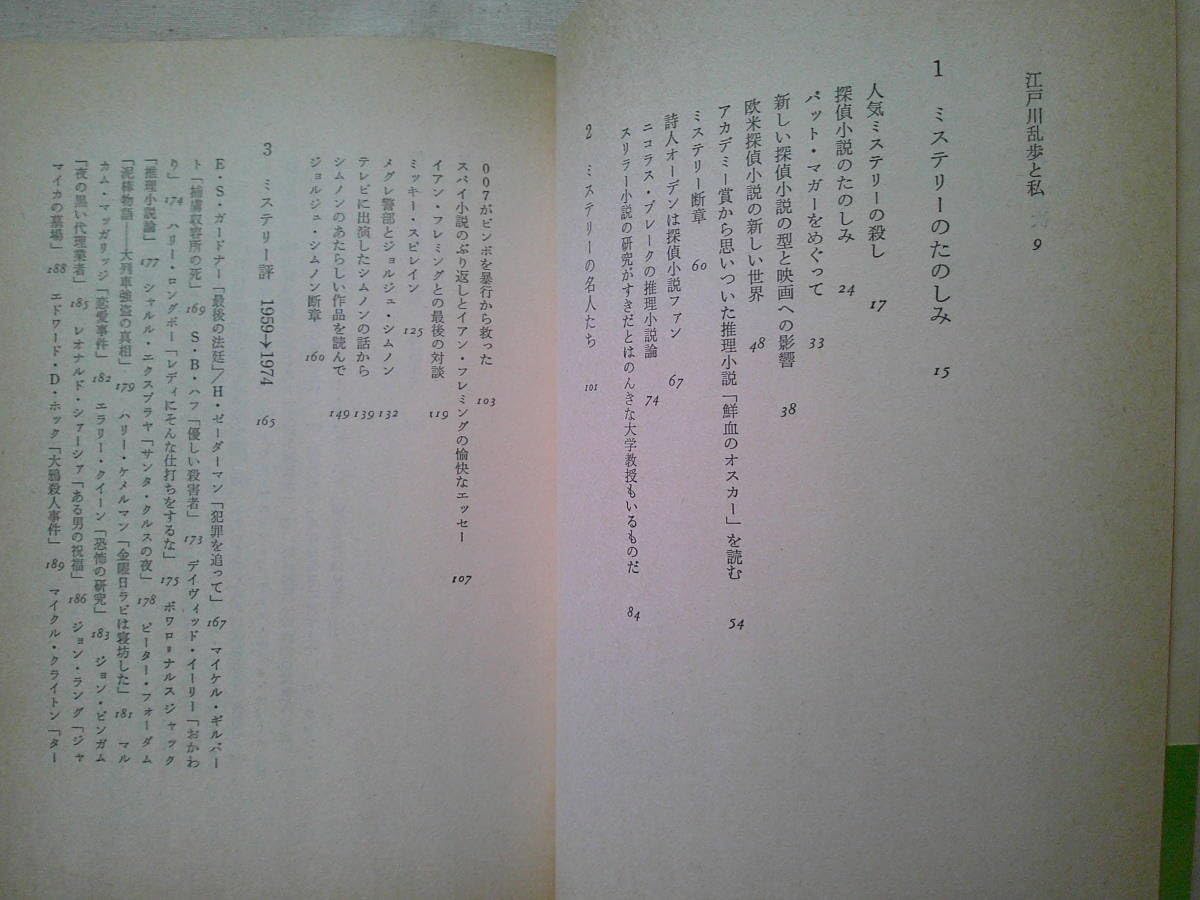 江戸川乱歩と私 9
1 ミステリーのたのしみ 15
人気ミステリーの殺し 17
探偵小説のたのしみ 24
パット・マガーをめぐって 33
新しい探偵小説の型と映画への影響 38
欧米探偵小説の新しい世界 48
アカデミー賞から思いついた推理小説「鮮血のオスカー」を読む 54
ミステリー断章 60
詩人オーデンは探偵小説ファン 67
ニコラス・ブレークの推理小説論 74
スリラー小説の研究がすきだとはのんきな大学教授もいるものだ 84
2 ミステリーの名人たち 101
007がビンボを暴行から救った 103
スパイ小説のぶり返しとイアン・フレミングの愉快なエッセー 107
イアン・フレミングとの最後の対談 119
ミッキー・スピレイン 125
メグレ警部とジョルジュ・シムノン 132
テレビに出演したシムノンの話から 139
シムノンのあたらしい作品を読んで 149
ジョルジュ・シムノン断章 160
3 ミステリー評 1959→1974 165
E・S・ガードナー「最後の法廷」/H・ゼーダーマン「犯罪を追って」 167 マイケル・ギルバー
ト「捕虜収容所の死」 169 S・B・ハフ「優しい殺害者」 173 デイヴィッド・イーリー「おかわ
り」 174 ハリー・ロングボー「レディにそんな仕打ちをするな」 175 ボワロ=ナルスジャック
「推理小説論」 177 シャルル・エクスブラヤ「サンタ・クルスの夜」 178 ピーター・フォーダム
「泥棒物語――大列車強盗の真相」 179 ハリー・ケメルマン「金曜日ラビは寝坊した」 181 マル
カム・マッガリッジ「恋愛事件」 182 エラリー・クイーン「恐怖の研究」 183 ジョン・ビンガム
「夜の黒い代理業者」 185 レオナルド・シャーシァ「ある男の祝福」 186 ジョン・ラング「ジャ
マイカの墓場」 188 エドワード・D・ホック「大鴉殺人事件」 189 マイクル・クライトン「ター